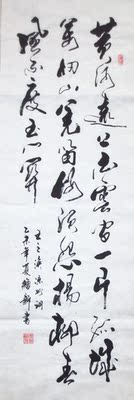 黄河远上白云间一片孤城
万仞山羌笛何须怨杨柳春
风不度玉门关
王之涣凉州词
乙未年夏
书